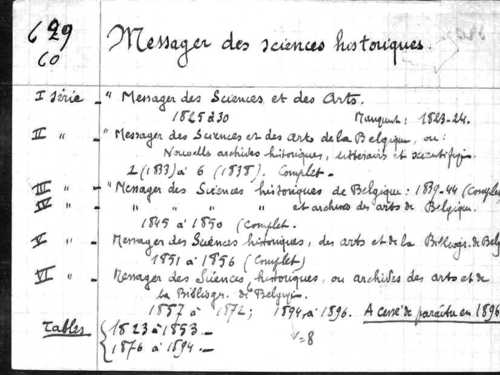 629
60
Messager des sciences historiques.
I Série - " Messager des Sciences et des Arts.
1825 à 30 Manquent : 1823-24.
II " - " Messager des Sciences et des Arts de la Belgique, ou :
Nouvelles archives historiques, littéraires et scientifiq.
1 (1833) à 6 (1838). Complet -
III " - " Messager des Sciences historiques de Belgique : 1839-44 (Complet
IV " - " " " " " et archives des arts de Belgique.
1845 à 1850 (Complet.
V " - Messager des Sciences historiques, des arts et de la Bibliogr. de Bel
1851 à 1856 (Complet)
VI " - Messager des Sciences historiques, ou archives des arts et de
la Bibliogr. de Belgiq.
1857 à 1872 ; 1874 à 1896. A cessé de paraître en 1896
Tables { 1823 à 1853. -
1876 à 1894. -